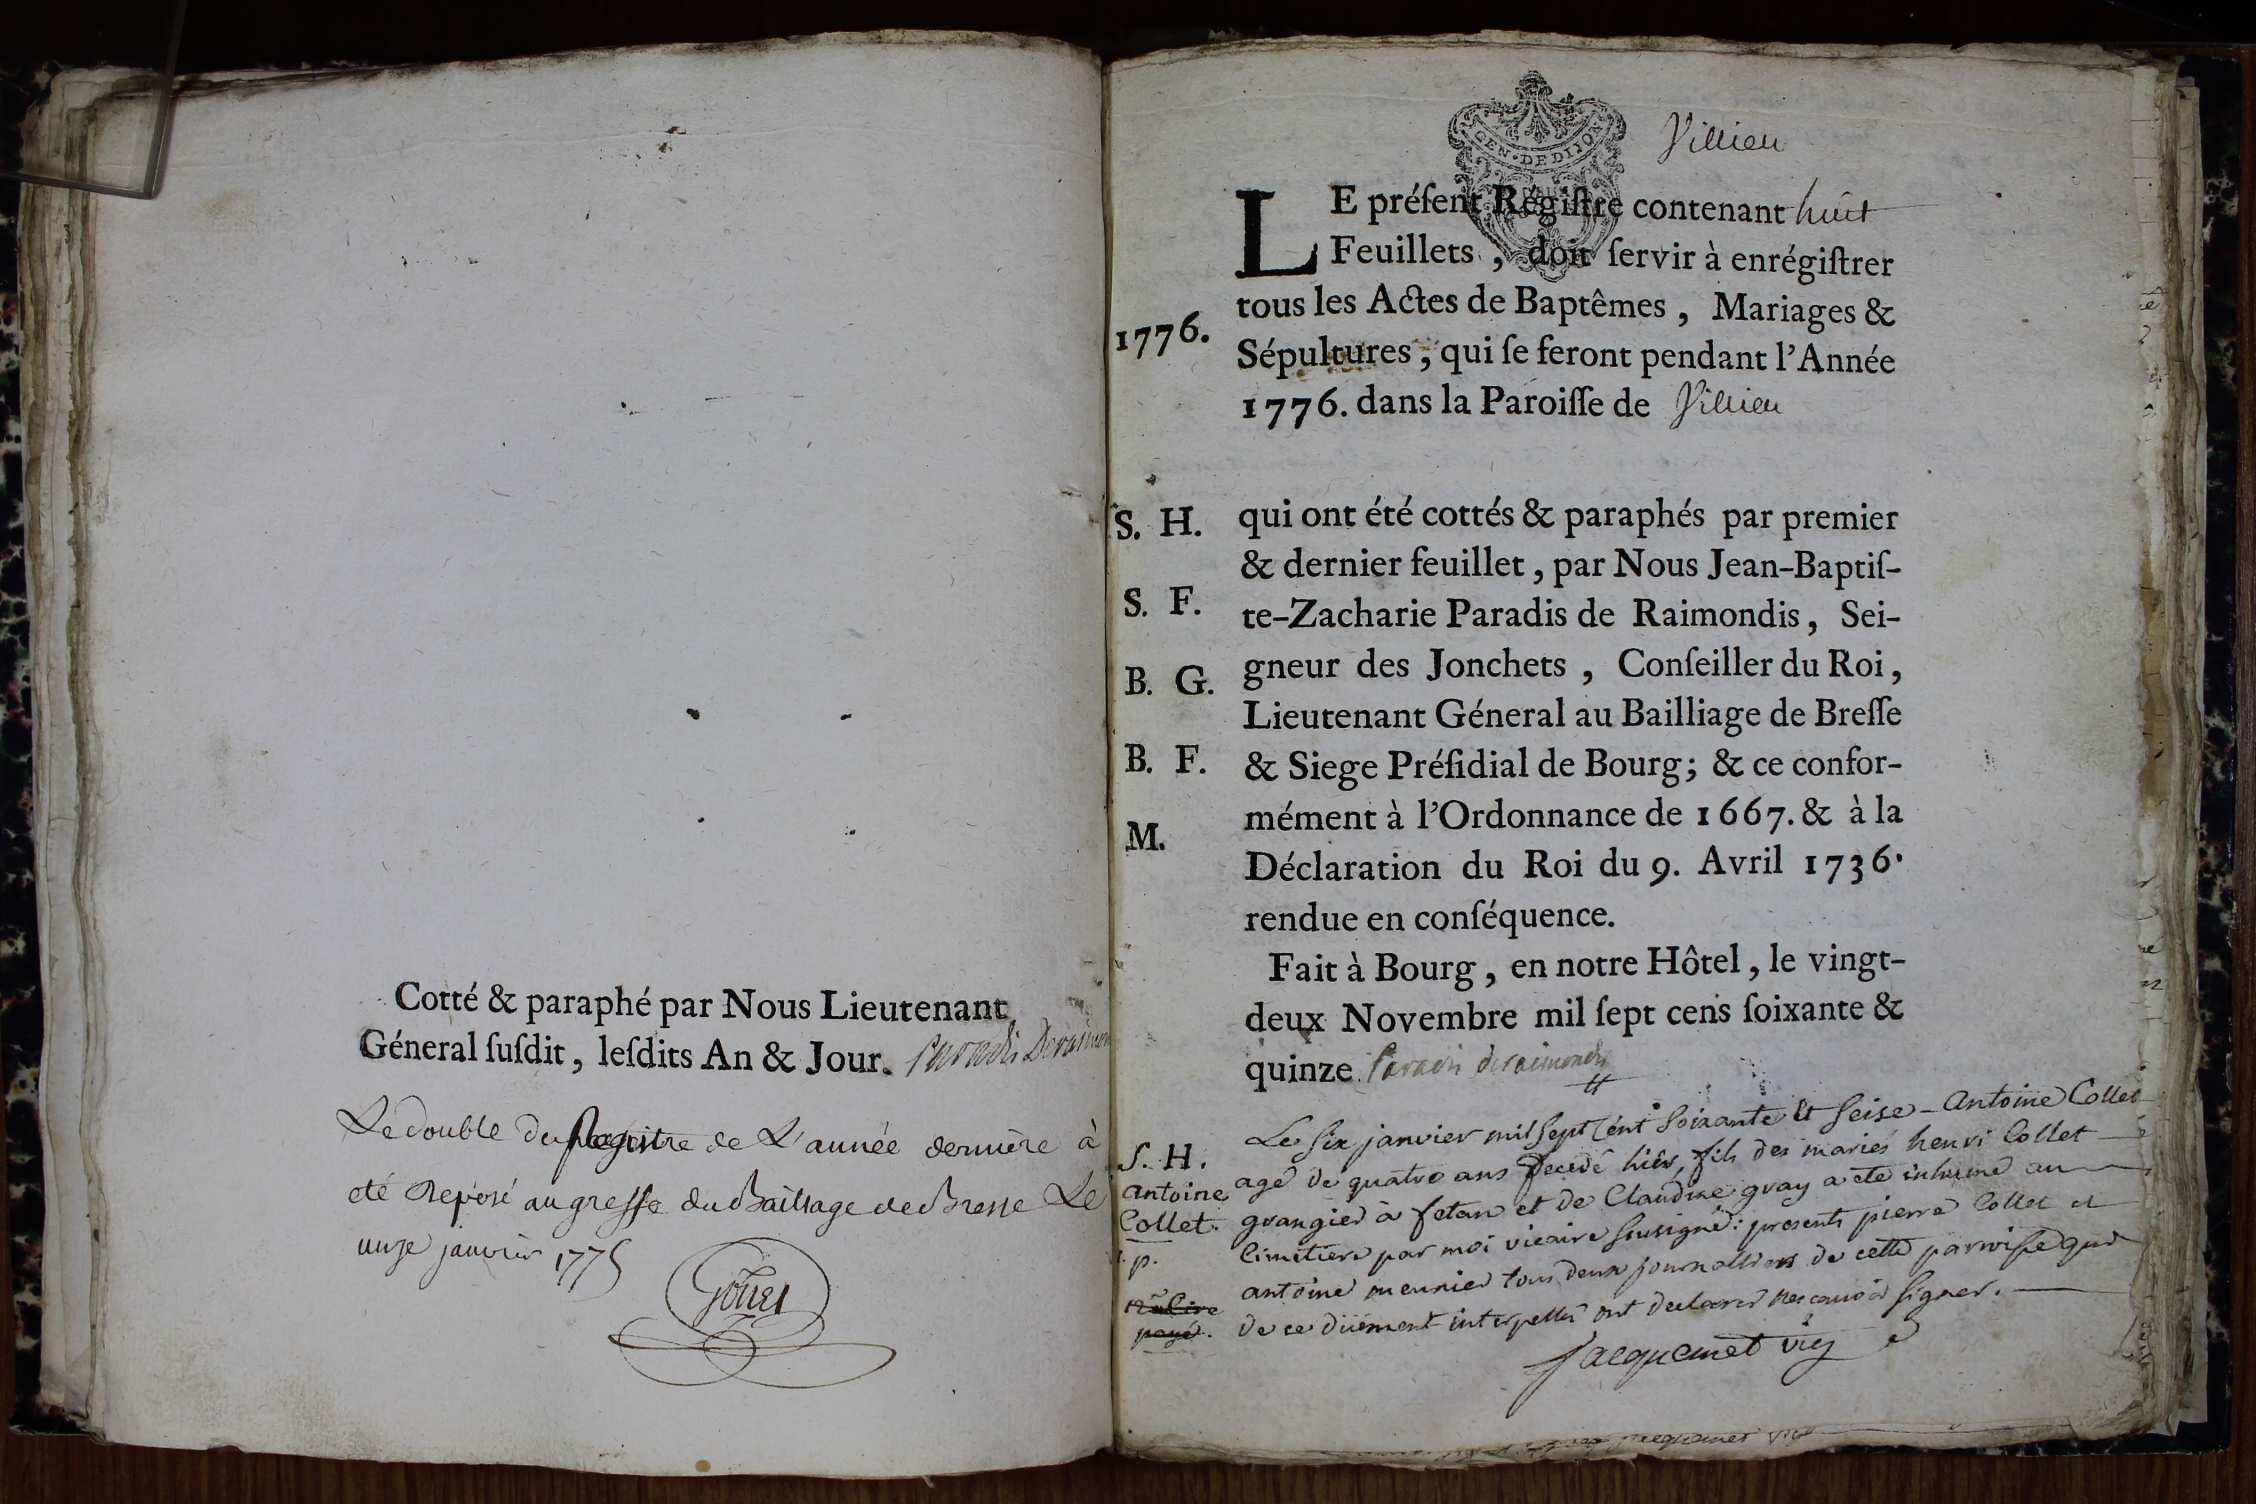 Cotté & paraphé par Nous Lieutenant
Géneral ſuſdit, leſdits An & Jour. Paradis Deraimon
Le double du Registre de L'année derniere à
eté deposé au greffe du Bailliage de Bresse Le
unze janvier 1775
GEN·DE DIJON
Villieu
LE préſent Régiſtre contenant huit
Feuillets, doit ſervir à enrégiſtrer
tous les Actes de Baptêmes, Mariages &
1776.
Sépultures, qui ſe feront pendant l'Année
1776. dans la Paroiſſe de Villieu
S. H.
qui ont été cottés & paraphés par premier
& dernier feuillet, par Nous Jean-Baptiſ-
S. F.
te-Zacharie Paradis de Raimondis, Sei-
B. G.
gneur des Jonchets, Conſeiller du Roi,
Lieutenant Géneral au Bailliage de Breſſe
B. F.
& Siege Préſidial de Bourg; & ce confor-
mément à l'Ordonnance de 1667. & à la
M.
Déclaration du Roi du 9. Avril 1736.
rendue en conſéquence.
Fait à Bourg, en notre Hôtel, le vingt-
deux Novembre mil ſept cens ſoixante &
quinze Paradis deraimondis
S. H.
antoine
Collet.
p.
payé.
Le six janvier mil sept cent soixante et seise antoine Collet
agé de quatre ans decedé hier, fils des mariés henri Collet
grangier à fetan et de Claudine gray a eté inhumé au
Cimetiere par moi vicaire soussigné: presents pierre Collet et
antoine meunier tous deux journalliers de cette parroisse qui
de ce duëment interpellés ont declarer ne scavoir signer.
Jacquemet vic